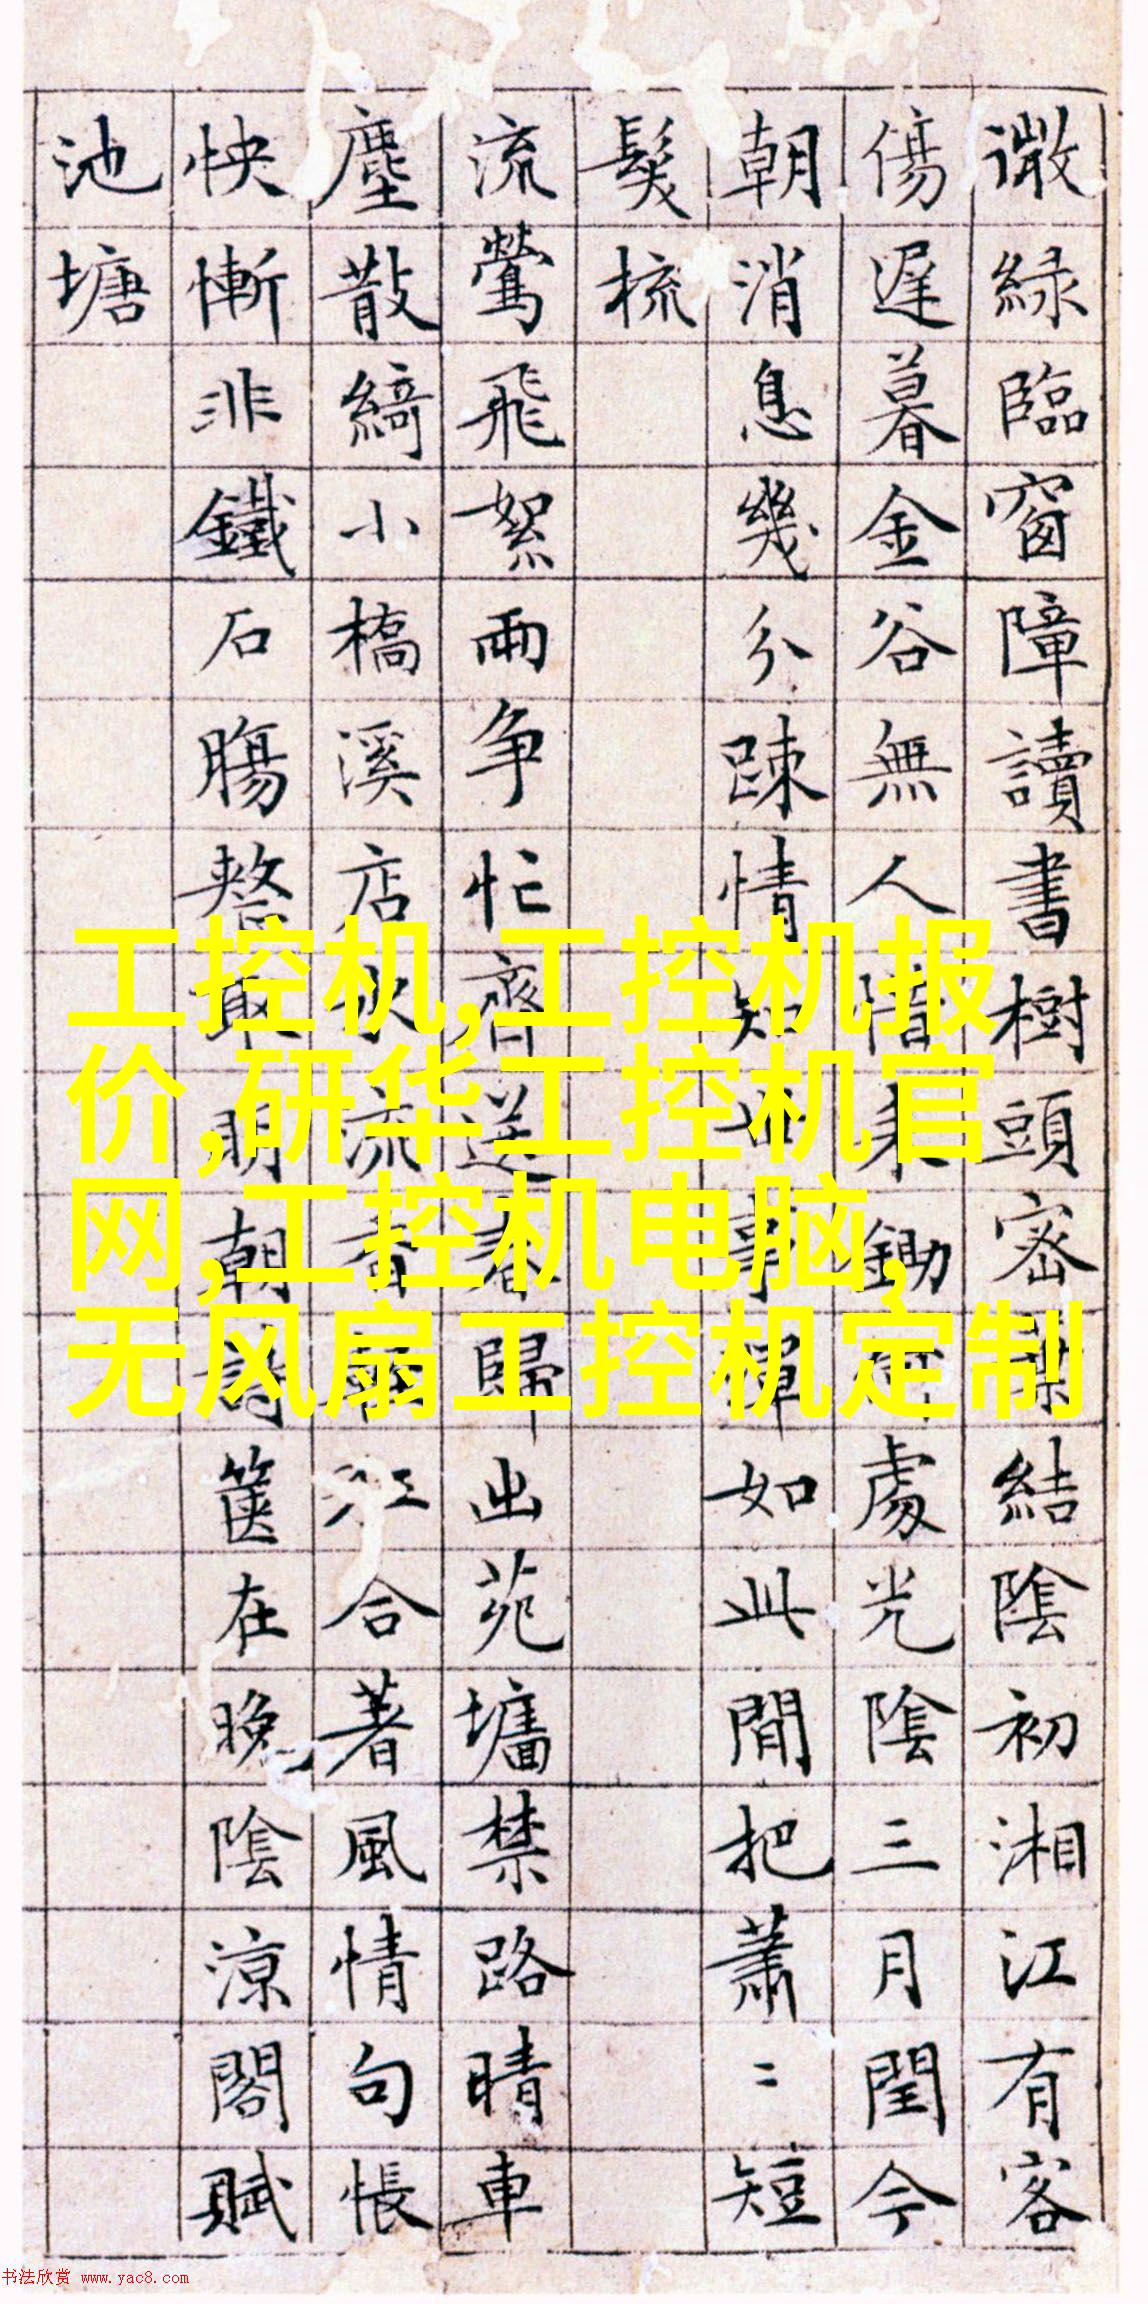 微綠臨窗障讀書樹頭密葉結陰初湘江有客
傷遲暮金谷無人惜鋤處光陰三月閏今
朝消息幾分踈情知事如此間把蕭〻短
鬂梳
流鶯飛絮兩争忙齊送春歸出苑墻禁路晴車
塵散綺小橋溪店水流香江合著風情句悵
怏慚非鐵石腸取明朝詩篋在晚陰涼閣賦
池塘
工控机,工控机报
价,研华工控机官
网,工控机电脑,
无风扇工控机定制
书法欣赏 www.yac8.com